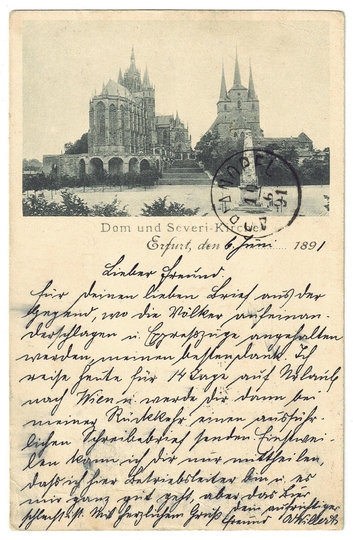 Dom und Severi-Kirche
Erfurt, den 6 Juni 1891
Lieber Freund.
Für deinen lieben Brief aus der
Gegend, wo die Völker aufeinan-
derschlagen u. Expresszüge angehalten
werden, meinen besten Dank. Ich
reise heute für 14 Tage auf Urlaub
nach Wien u. werde dir dann bei
meiner Rückkehr einen ausführ-
lichen Schreibebrief senden. Einstwei-
len kann ich dir nur mittheilen,
dass ich hier Betriebsleiter bin u. es
mir ganz gut geht, aber das Bier
schlecht ist. Mit herzlichem Gruß Dein aufrichtiger
Freund